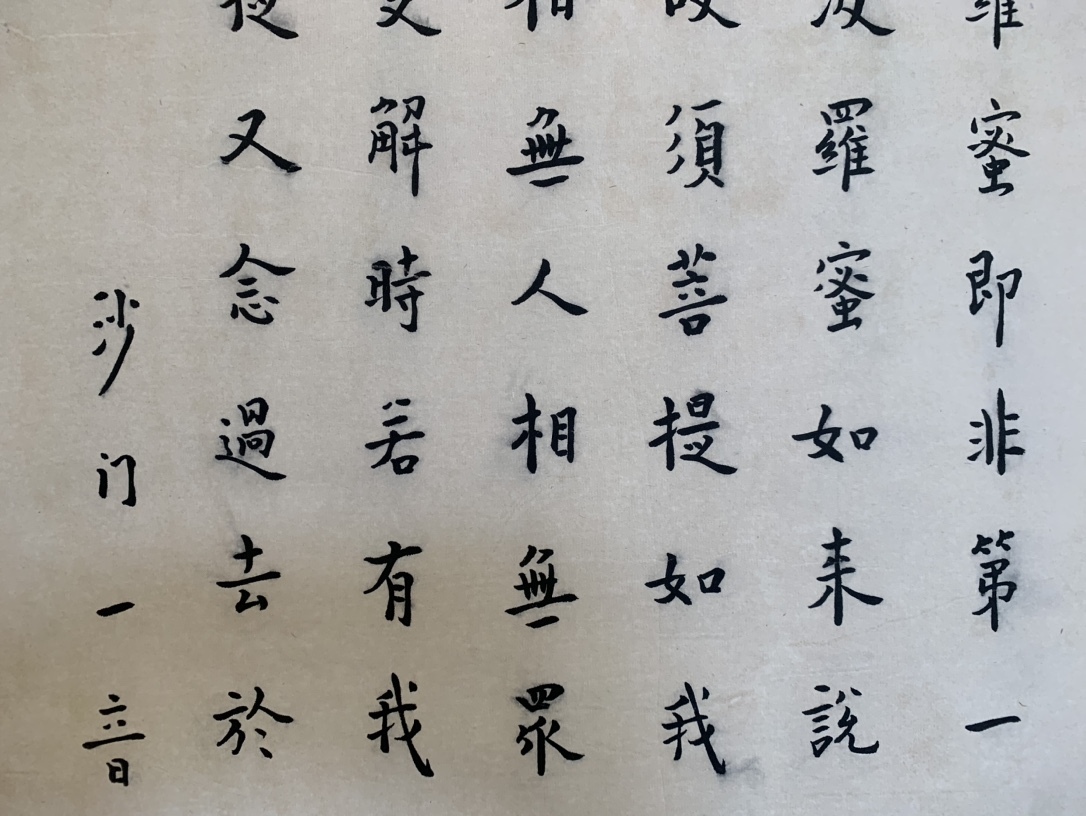 羅蜜即非第一
波羅蜜如来說
故須菩提如我
相無人相無眾
支解時若有我
提又念過去於
沙门一音